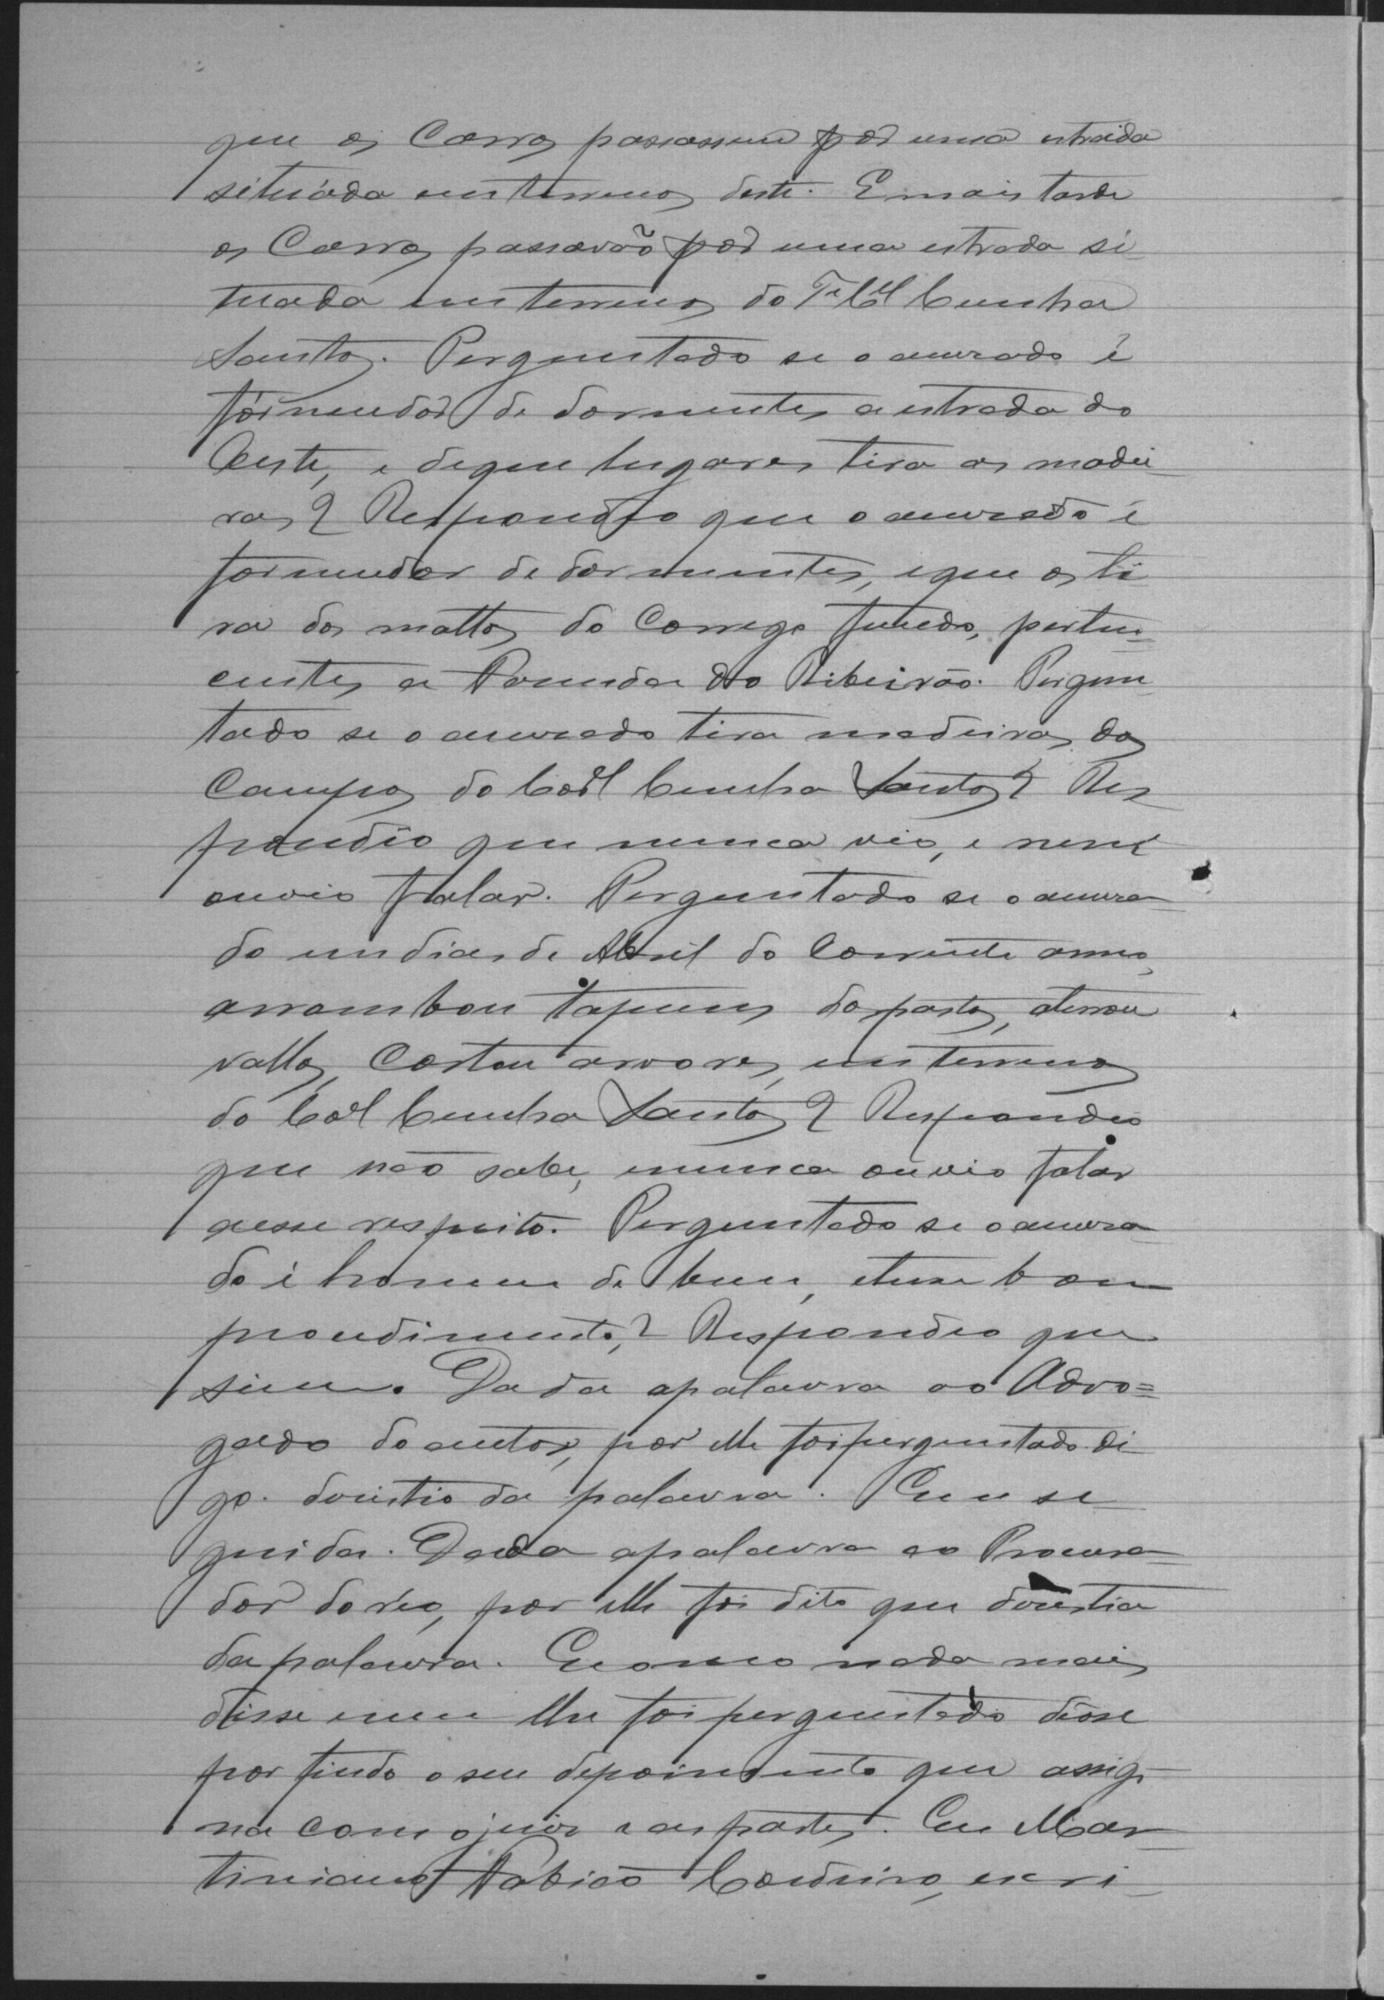 que os Carros passassem por uma estrada
situada em terrenos deste. E mais tarde
os Carros passavão por uma estrada si
tuada em terrenos do Te Cel Cunha
Santos. Perguntado se o accusado é
fornecedor de dormentes a estrada do
Oeste, e de que lugares tira as madei
ras? Respondeo que o accusado é
fornecedor de dormentes, e que os ti
ra dos mattos do Corrego fundo, perten=
centes a Fasenda do Ribeirão. Pergun
tado se o accusado tira madeiras dos
Campos do Coel Cunha Santos? Res
pondeo que nunca vio, e nem
ouvio falar. Perguntado se o accusa=
do em dias de Abril do Corrente anno,
arrombou tapumes do pasto, aterrou
vallos, Cortou arvores, em terrenos
do Coel Cunha Santos? Respondeo
que não sabe, e nunca ouvio falar
a esse respeito. Perguntado se o accusa
do é homem de bem, e tem bom
procedimento? Respondeo que
sim. Dada a palavra ao Advo=
gado do autor, por elle foi perguntado di
go. desistio da palavra. Em se
guida. Dada a palavra ao Procura=
dor do réo, por elle foi dito que desistia
da palavra. E como nada mais
disse e nem lhe foi perguntado deo se
por findo o seu depoimento que assig
na com o juiz e as partes. Eu Mar
tiniano Fabião Cordeiro, escri